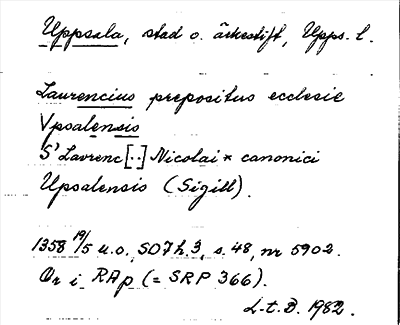 Uppsala, stad o. ärkestift, Upps. l.
Laurencius prepositus ecclesie
Vpsalensis
S' Lavrenc[..] Nicolai * canonici
Upsalensis (Sigill).
1358 19/5 u.o., SD 7 h. 3, s. 48, nr 5902.
Or i RAp (= SRP 366).
L-t. D. 1982.